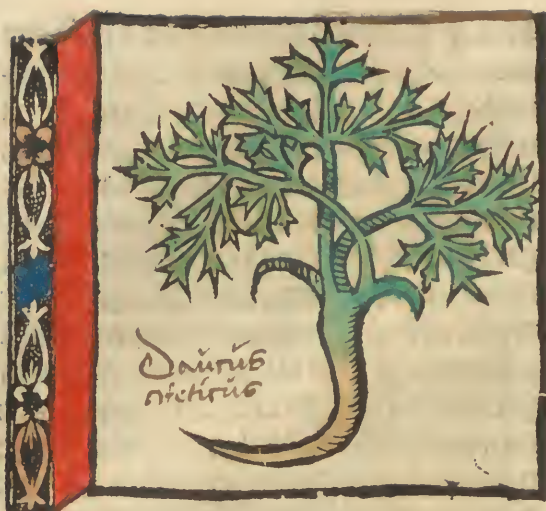 Daucus
creticus